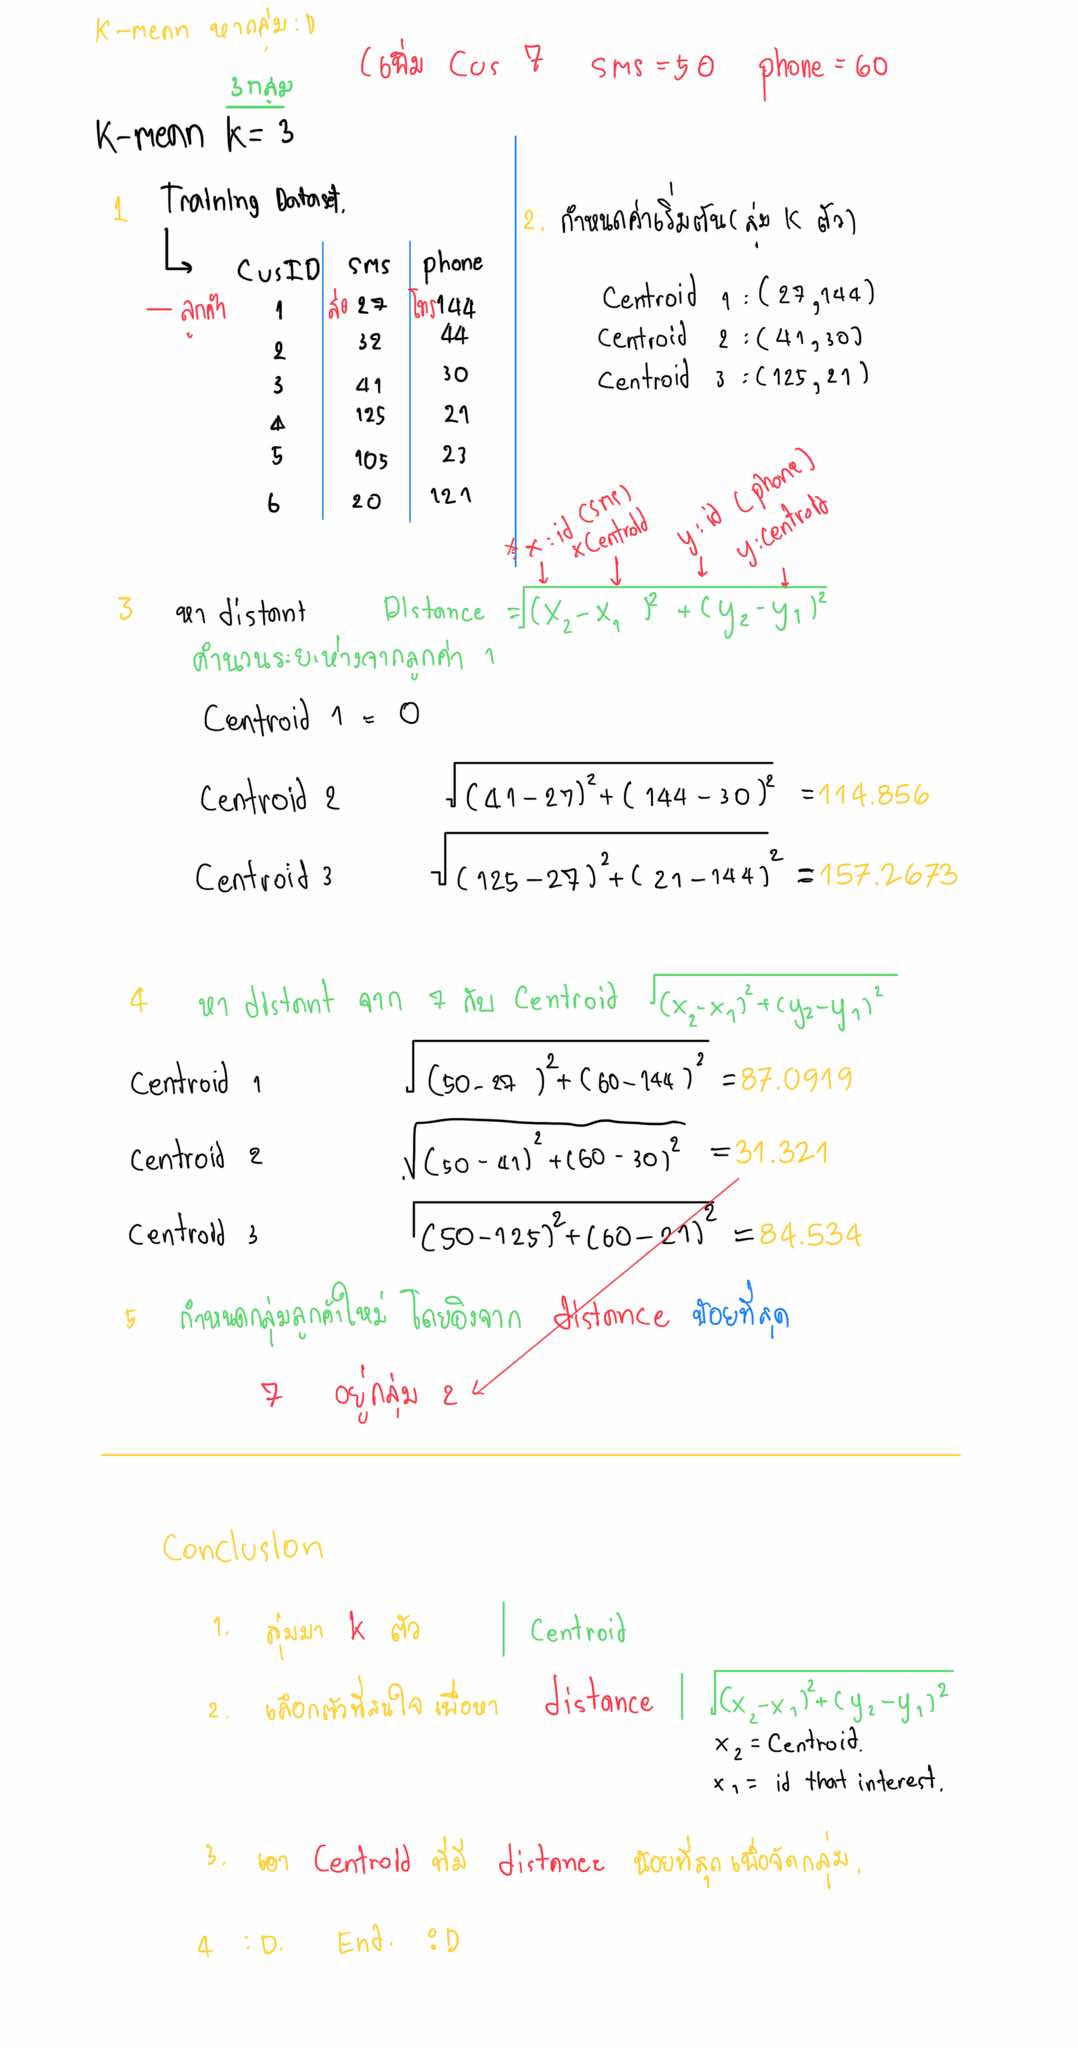 K-mean หากลุ่ม :D
เพิ่ม Cus 7 SMS = 50 phone = 60
3 กลุ่ม
K-mean k = 3
1 Training Dataset.
CusID SMS phone
— ลูกค้า 1 ส่ง 27 โทร 144
2 32 44
3 41 30
4 125 21
5 105 23
6 20 121
2. กำหนดค่าเริ่มต้น (สุ่ม K ตัว)
Centroid 1 : (27,144)
Centroid 2 : (41,30)
Centroid 3 : (125,21)
* x : id (SMS)
x Centroid
y : id (phone)
y : Centroid
3 หา distant Distance = √(x₂ - x₁)² + (y₂ - y₁)²
คำนวนระยะห่างจากลูกค้า 1
Centroid 1 = 0
Centroid 2 √(41 - 27)² + (144 - 30)² = 114.856
Centroid 3 √(125 - 27)² + (21 - 144)² = 157.2673
4 หา distant จาก 7 กับ Centroid √(x₂-x₁)² + (y₂-y₁)²
Centroid 1 √(50 - 27)² + (60 - 144)² = 87.0919
Centroid 2 √(50 - 41)² + (60 - 30)² = 31.321
Centroid 3 √(50 - 125)² + (60 - 21)² = 84.534
5 กำหนดกลุ่มลูกค้าใหม่ โดยอิงจาก distance น้อยที่สุด
7 อยู่กลุ่ม 2
Conclusion
1. สุ่มมา k ตัว | Centroid
2. เลือกตัวที่สนใจ เพื่อหา distance | √(x₂-x₁)² + (y₂-y₁)²
x₂ = Centroid.
x₁ = id that interest.
3. เอา Centroid ที่มี distance น้อยที่สุด เพื่อจัดกลุ่ม.
4 :D. End. :D